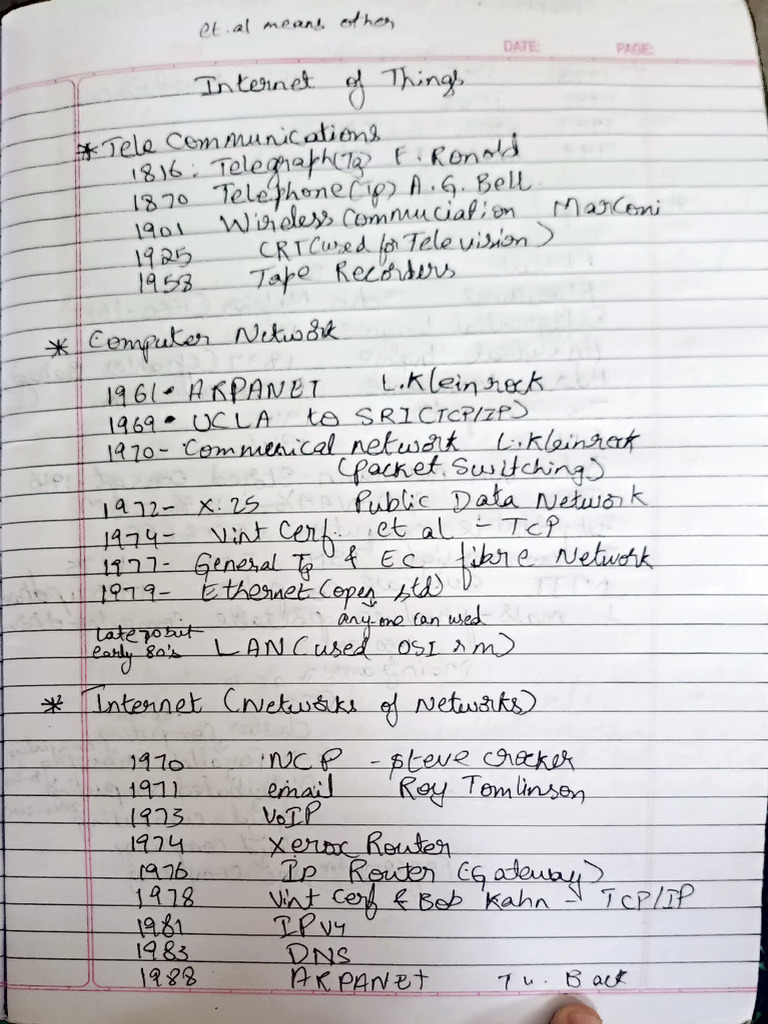 et.al means other
DATE: PAGE:
Internet of Things
* Tele Communications
1816: Telegraph(Tg) F. Ronald
1870 Telephone(Tp) A.G. Bell
1901 Wireless Commuciation Marconi
1925 CRT(used for Television)
1958 Tape Recorders
* Computer Network
1961- ARPANET L.Kleinrock
1969- UCLA to SRI(TCP/IP)
1970- Commerical network L.Kleinrock
(packet Switching)
1972- X.25 Public Data Network
1974- Vint Cerf. et al - TCP
1977- General Tg & EC fibre Network
1979- Ethernet(open std)
any one can used
Late 70 but
early 80's LAN(used OSI rm)
* Internet (Networks of Networks)
1970 NCP - Steve Crocker
1971 email Roy Tomlinson
1973 VoIP
1974 Xerox Router
1976 Ip Router (Gateway)
1978 Vint Cerf & Bob Kahn - TCP/IP
1981 IPv4
1983 DNS
1988 ARPANET Back